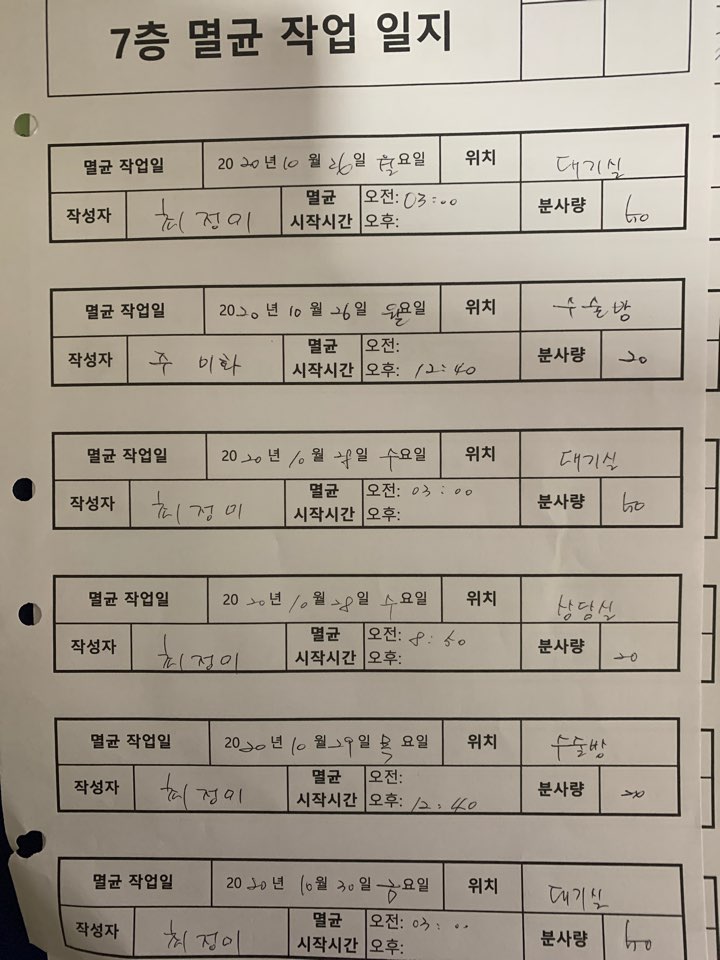 7층 멸균 작업 일지
멸균 작업일 2020년 10월 26일 월요일 위치 대기실
작성자 최정미 멸균 시작시간 오전: 03:00 오후: 분사량 60
멸균 작업일 2020년 10월 26일 월요일 위치 수술방
작성자 주미화 멸균 시작시간 오전: 오후: 12:40 분사량 20
멸균 작업일 2020년 10월 28일 수요일 위치 대기실
작성자 최정미 멸균 시작시간 오전: 03:00 오후: 분사량 60
멸균 작업일 2020년 10월 28일 수요일 위치 상담실
작성자 최정미 멸균 시작시간 오전: 8:50 오후: 분사량 20
멸균 작업일 2020년 10월 29일 목요일 위치 수술방
작성자 최정미 멸균 시작시간 오전: 오후: 12:40 분사량 20
멸균 작업일 2020년 10월 30일 금요일 위치 대기실
작성자 최정미 멸균 시작시간 오전: 03:00 오후: 분사량 60